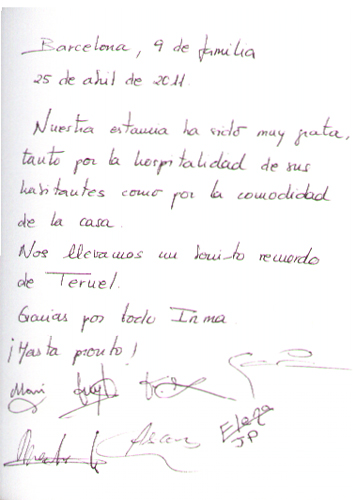 Barcelona, 9 de familia
25 de abril de 2011.
Nuestra estancia ha sido muy grata,
tanto por la hospitalidad de sus
habitantes como por la comodidad
de la casa.
Nos llevamos un bonito recuerdo
de Teruel.
Gracias por todo Inma
¡Hasta pronto!
Elena
JP